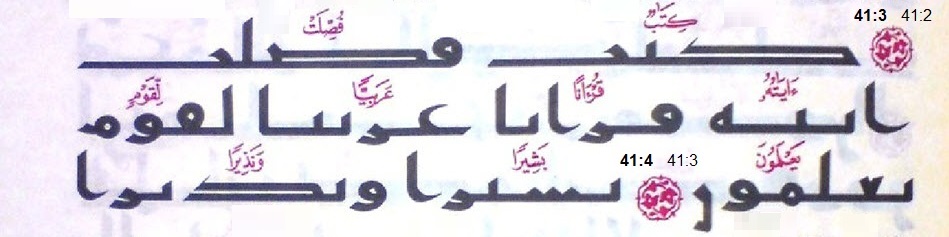 41:3 41:2
كِتَٰبٌ فُصِّلَتْ
كتب فصلت
ءَايَٰتُهُۥ قُرْءَانًا عَرَبِيًّا لِّقَوْمٍ
ايته قرانا عربيا لقوم
يَعْلَمُونَ 41:4 41:3 بَشِيرًا وَنَذِيرًا
يعلمون بشيرا ونذيرا